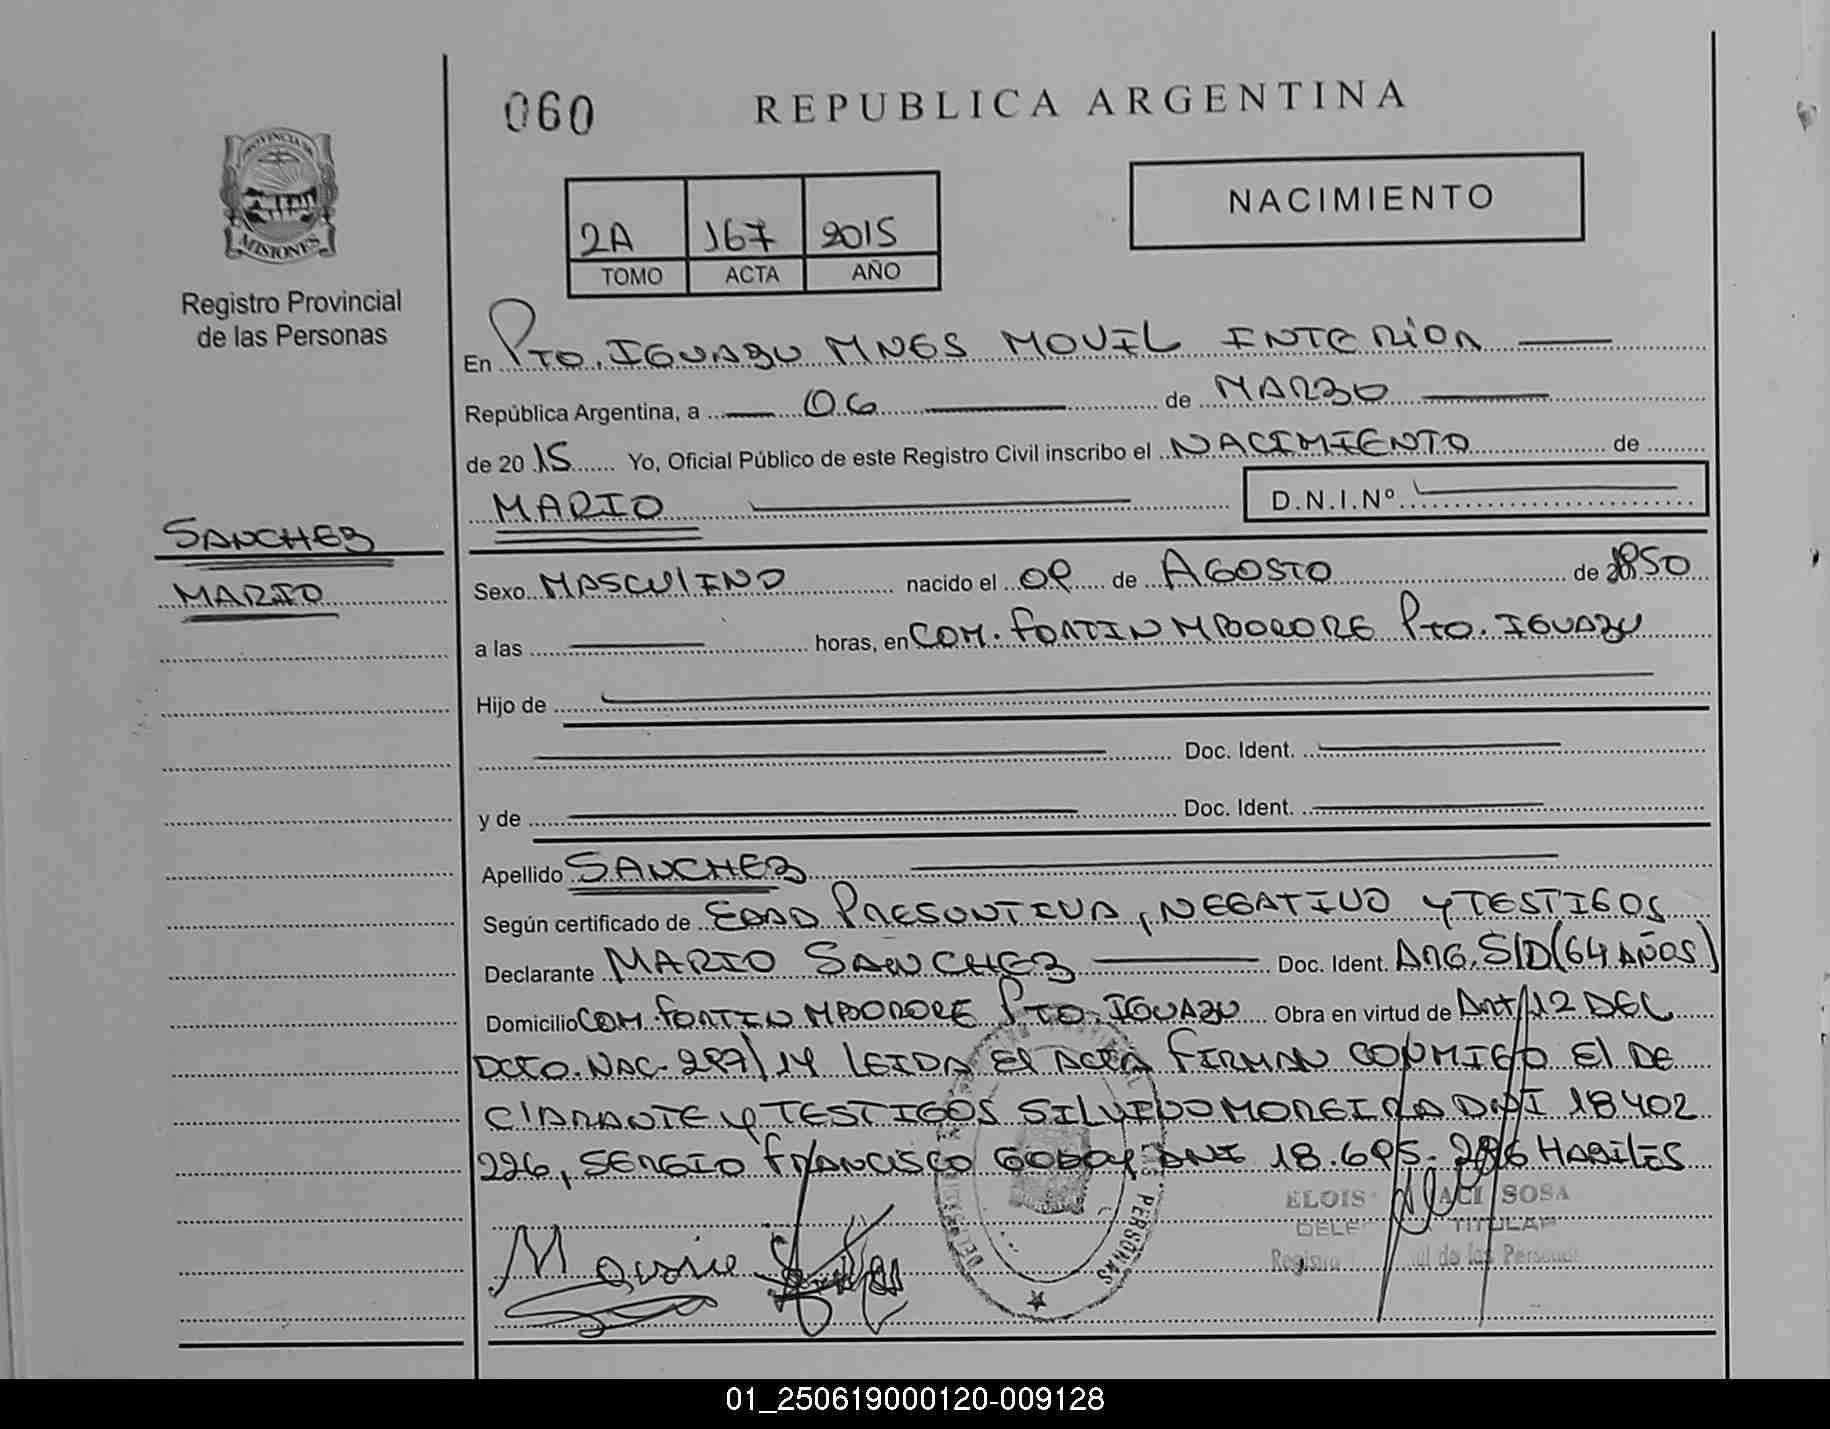 060 REPUBLICA ARGENTINA
PROVINCIA DE
MISIONES
Registro Provincial
de las Personas
NACIMIENTO
2A 167 2015
TOMO ACTA AÑO
En PTO. IGUAZU MNES MOVIL INTERIOR
República Argentina, a 06 de MARZO
de 20 15 Yo, Oficial Público de este Registro Civil inscribo el NACIMIENTO de
MARIO D.N.I.Nº
SANCHEZ
MARIO
Sexo MASCULINO nacido el 09 de AGOSTO de 1950
a las horas, en COM. FORTIN MBORORE PTO. IGUAZU
Hijo de
Doc. Ident.
y de Doc. Ident.
Apellido SANCHEZ
Según certificado de EDAD PRESUNTIVA, NEGATIVO Y TESTIGOS
Declarante MARIO SANCHEZ Doc. Ident. ARG. S/D (64 AÑOS)
Domicilio COM. FORTIN MBORORE PTO. IGUAZU Obra en virtud de Art/12 DEL
DCTO. NAC. 297/14 LEIDA El ACTA FIRMAN CONMIGO El DE
ClARANTE Y TESTIGOS SILVINO MOREIRA DNI 18402
226, SERGIO FRANCISCO GODOY DNI 18.695.286 HABILES
ELOIS SOSA
TITULAR
de las Personas
PERSONAS
01_250619000120-009128